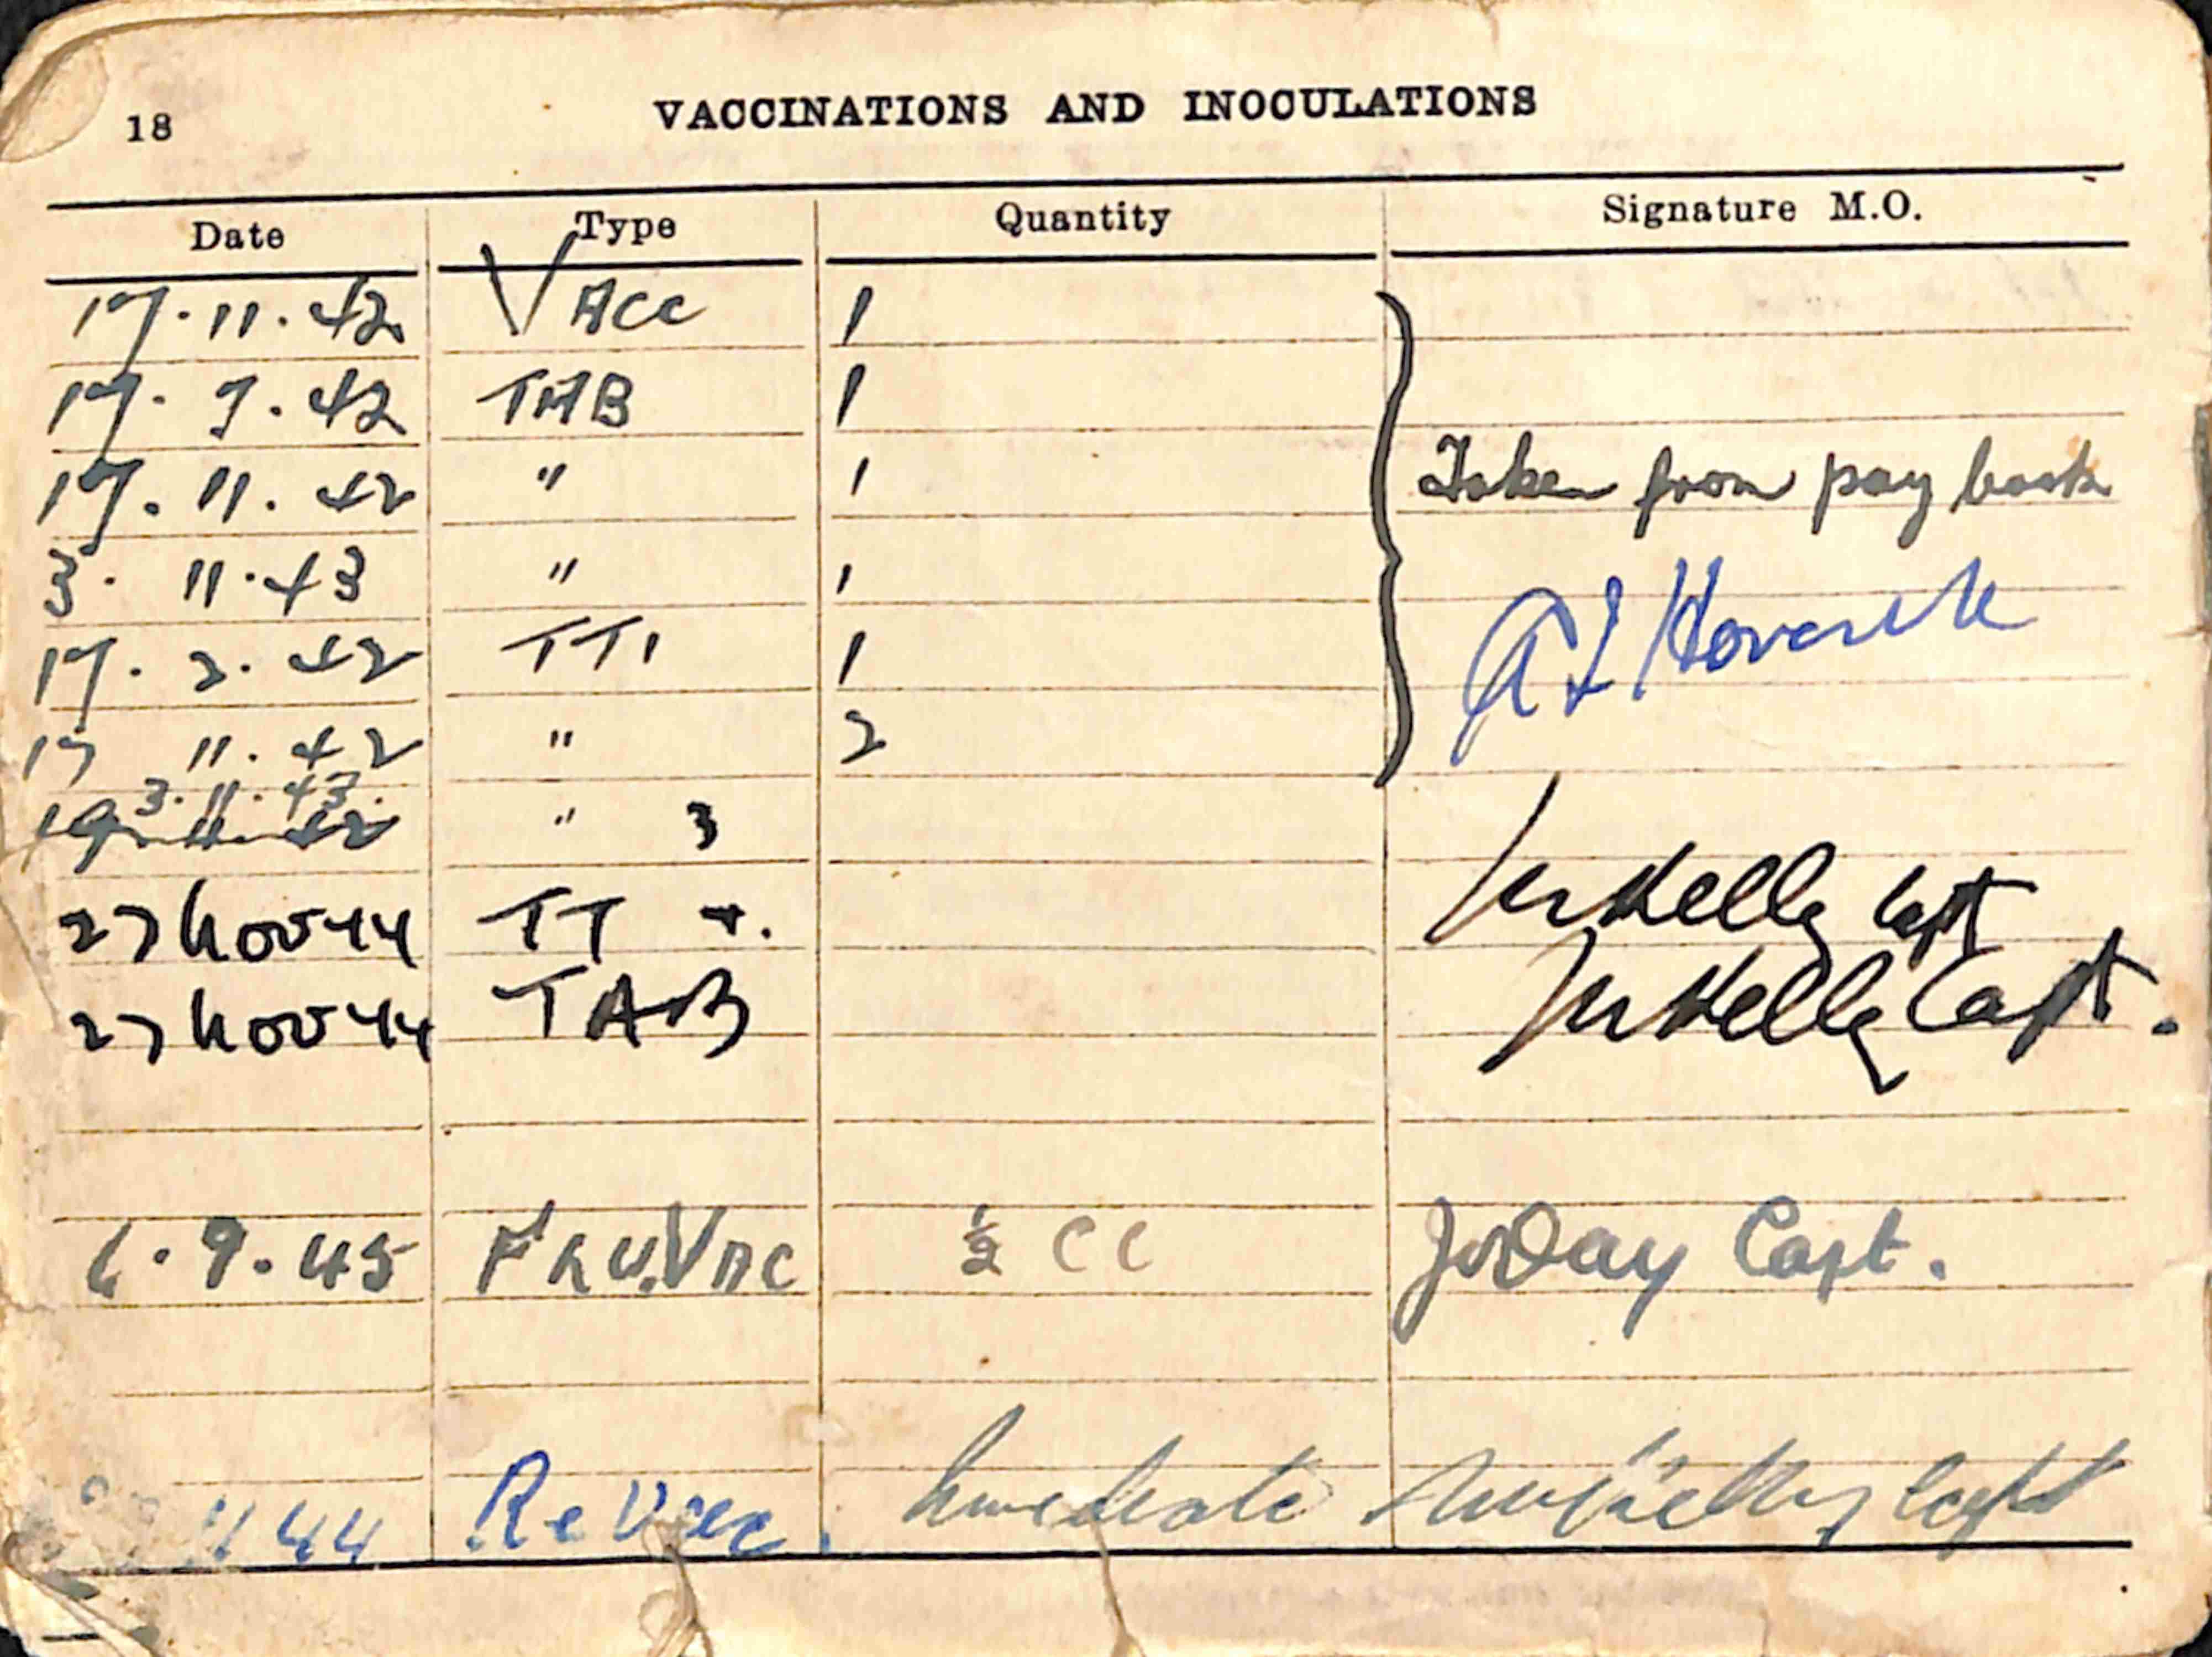 18 VACCINATIONS AND INOCULATIONS
Date Type Quantity Signature M.O.
17.11.42 VAcc 1
17. 9.42 TAB 1
17.11.42 " 1 Taken from pay book
3. 11.43 " 1
17. 2.42 TT1 1
17 11.42 " 2
3.11.43.
19.11.42 " 3
27 Nov 44 TT Kelly Capt
27 Nov 44 TAB Kelly Capt.
6.9.45 Vac ½ CC Day Capt.
44 ReVacc. Immediate Capt